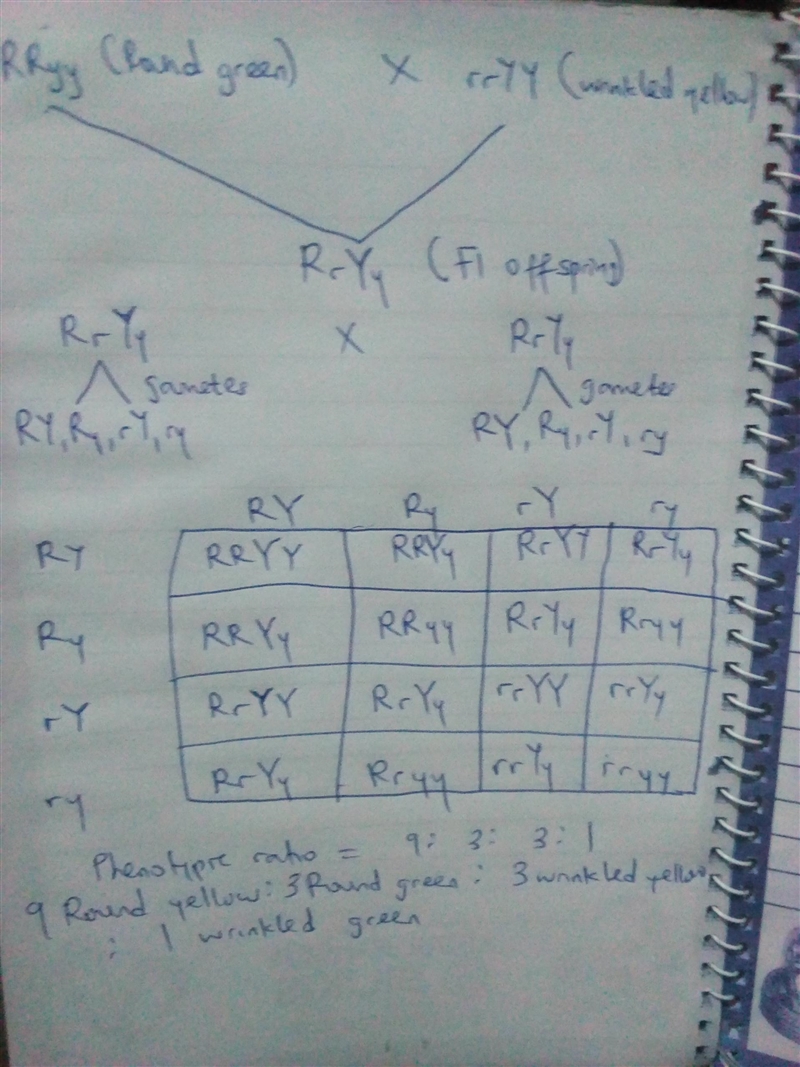 RRyy (Round green) X rrYY (wrinkled yellow)
RrYy (F1 offspring)
RrYy X RrYy
gametes gametes
RY, Ry, rY, ry RY, Ry, rY, ry
RY Ry rY ry
RY RRYY RRYy RrYY RrYy
Ry RRYy RRyy RrYy Rryy
rY RrYY RrYy rrYY rrYy
ry RrYy Rryy rrYy rryy
Phenotypic ratio = 9: 3: 3: 1
9 Round yellow: 3 Round green: 3 wrinkled yellow
: 1 wrinkled green